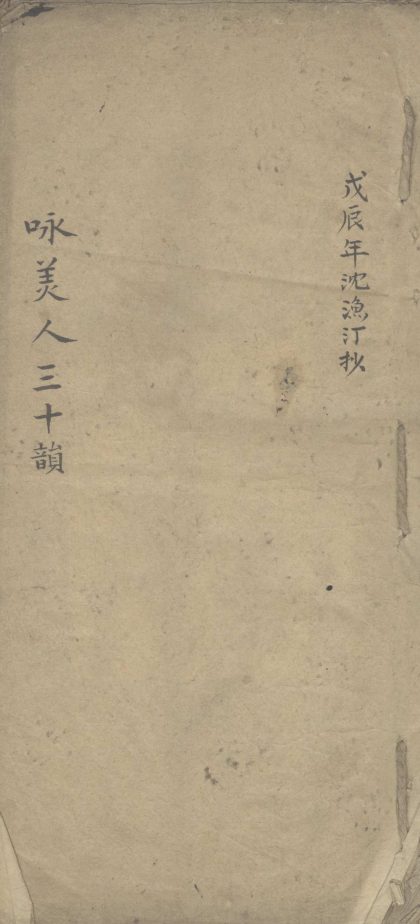 戊辰年沈漁汀抄
咏美人三十韻